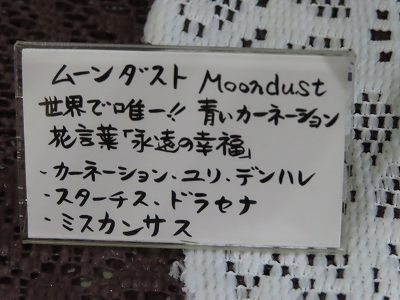 ムーンダスト Moondust
世界で唯一!! 青いカーネーション
花言葉「永遠の幸福」
・カーネーション、ユリ、デンハレ
・スターチス、ドラセナ
・ミスカンサス